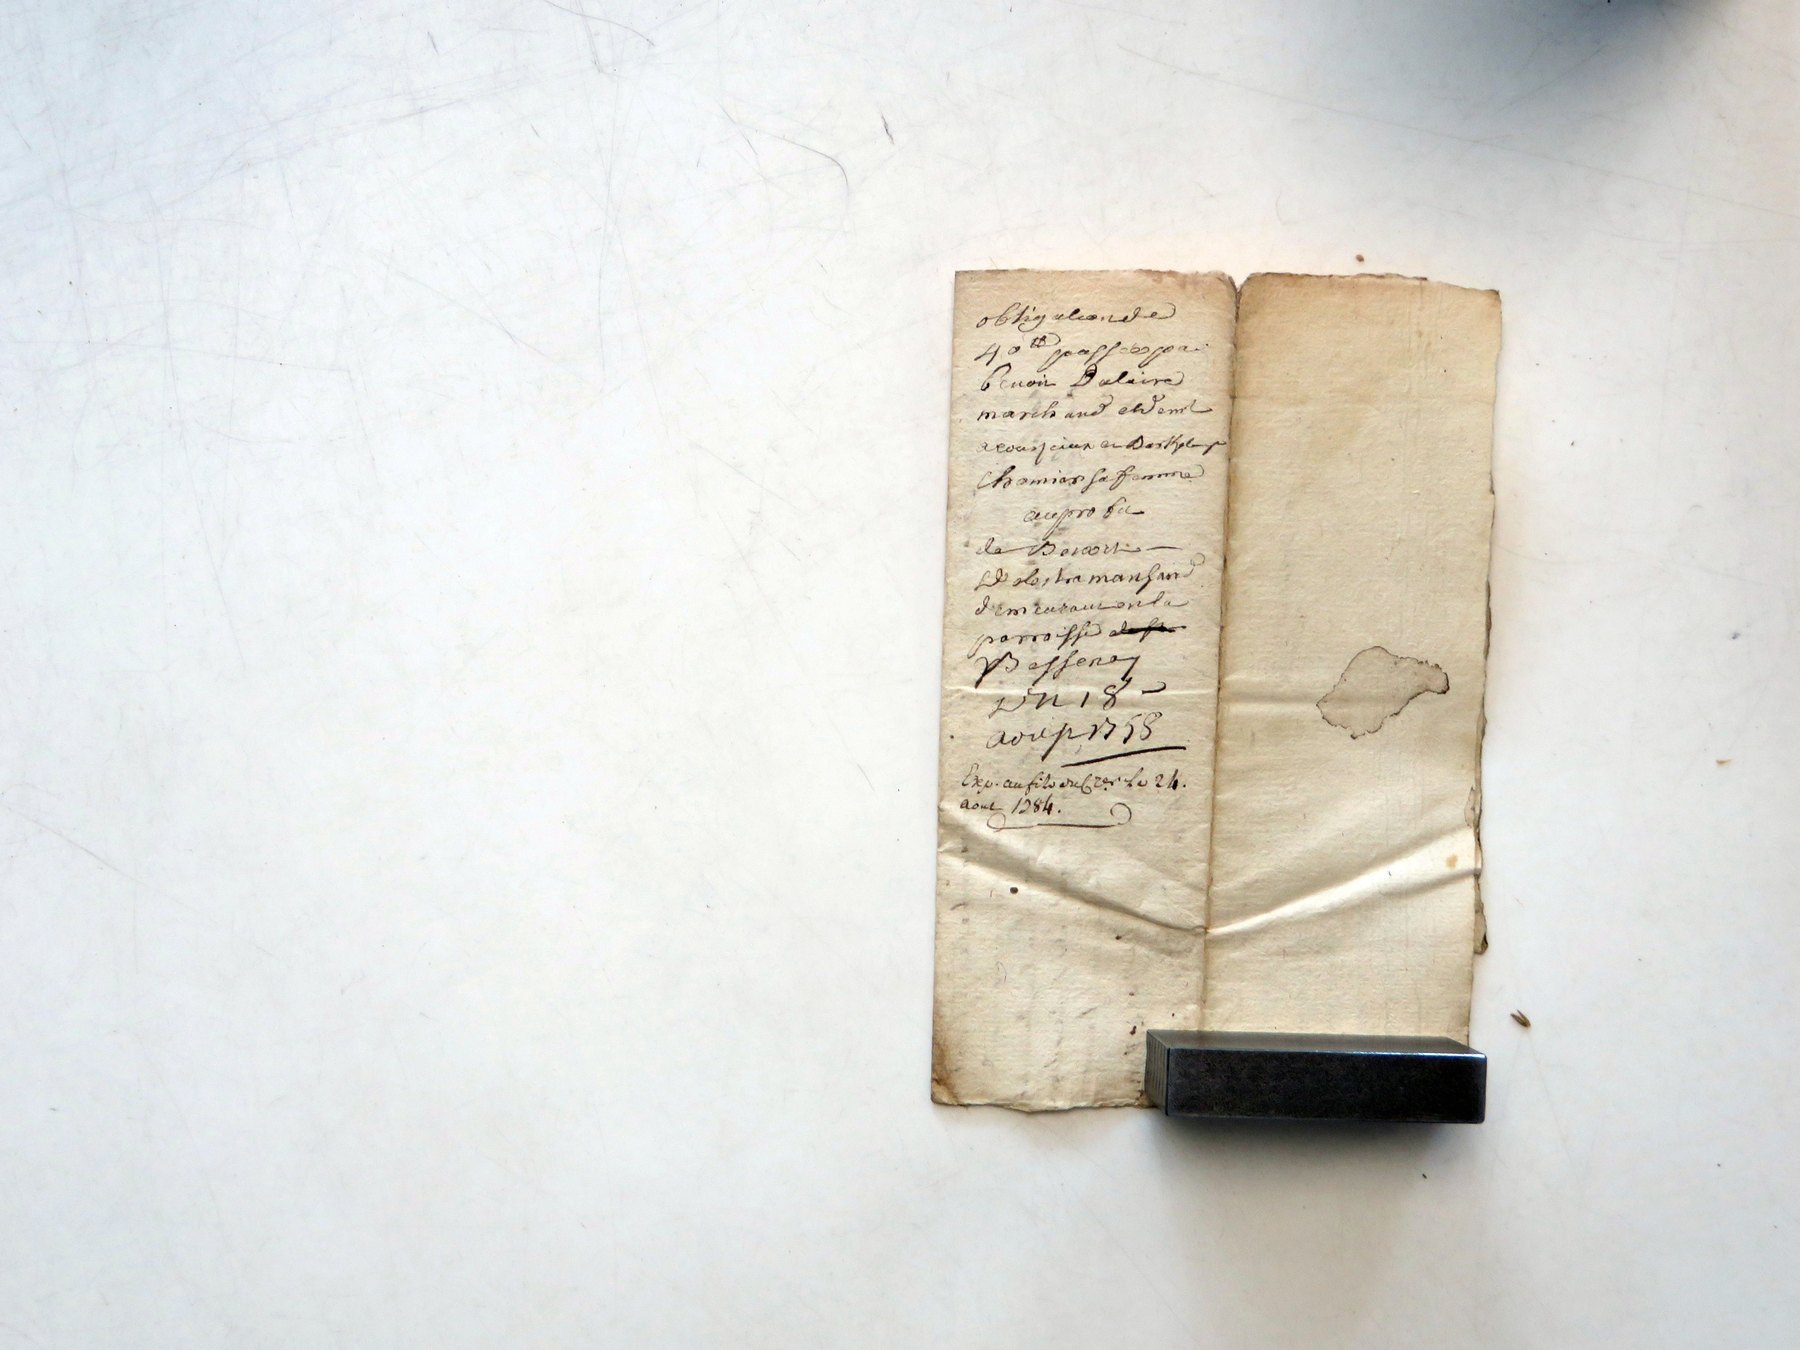 obligation de
40 tt passée par
benoit Dalaire
marchand et dem t
a courzieux et
Chamier sa femme
au profit
de Benoit
marchand
demeurant en la
parroisse
Bessenay
Du 18
aoust 1758
Exp. au fils du le 24.
aout 1784.